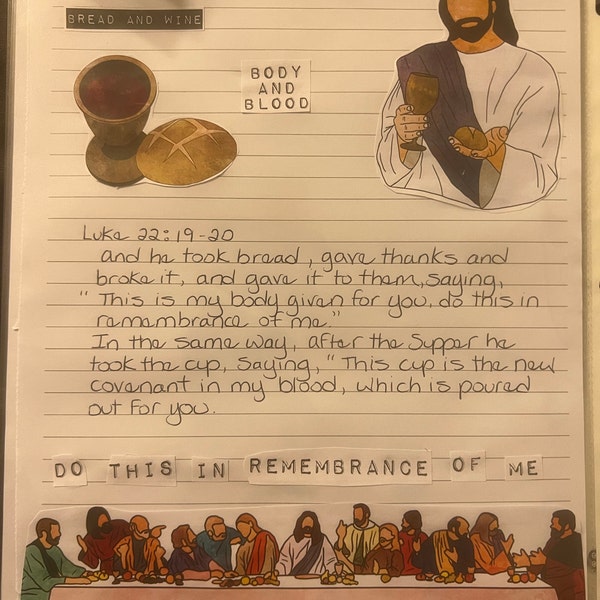 BREAD AND WINE
BODY
AND
BLOOD
Luke 22:19-20
and he took bread, gave thanks and
broke it, and gave it to them, saying,
"This is my body given for you, do this in
remembrance of me."
In the same way, after the supper he
took the cup, saying, "This cup is the new
covenant in my blood, which is poured
out for you.
DO THIS IN REMEMBRANCE OF ME